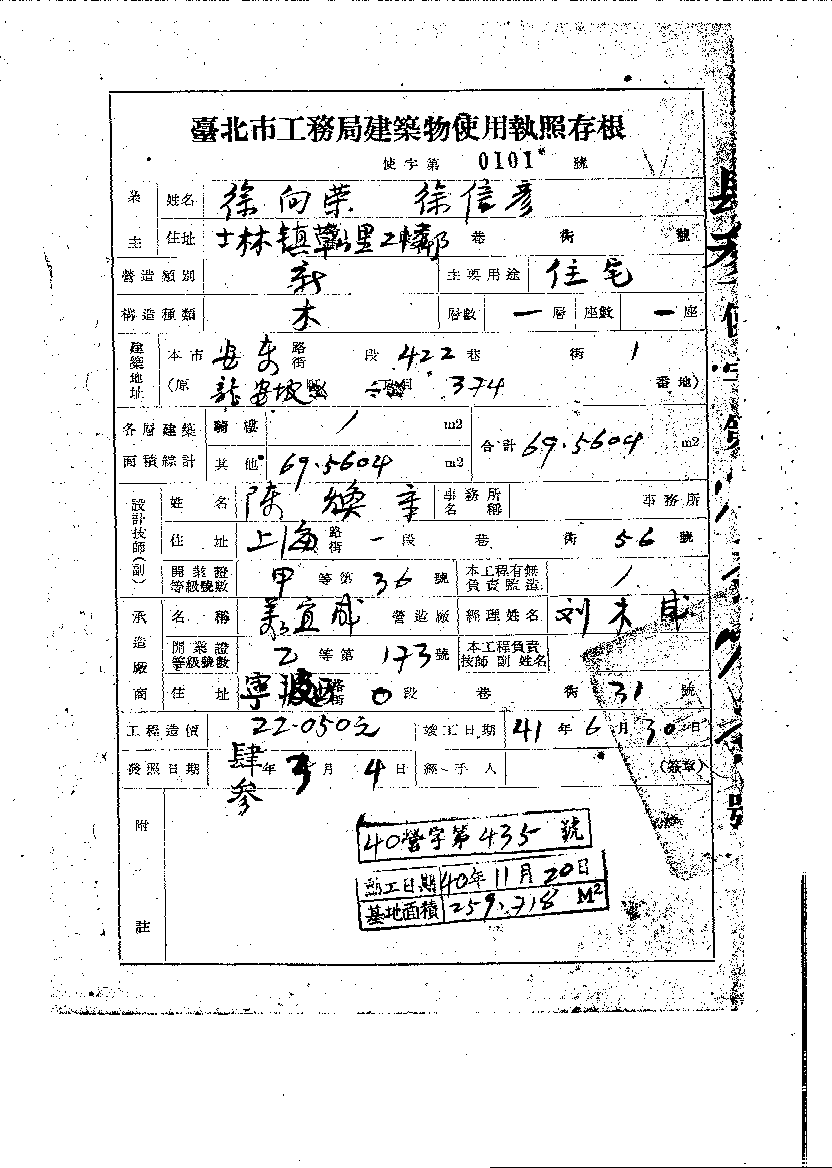 臺北市工務局建築物使用執照存根
使字第 0101 號
業主 姓名 徐向荣 徐信彦
住址 士林镇 里 2 鄰 巷 街 號
營造類別 新 主要用途 住宅
構造種類 木 層數 一層 座數 一座
建築地址 本市 安東 路街 段 422 巷 街 1
(原 龍安坡 374 番地)
各層建築面積綜計 騎樓 / m2 合計 69.5604 m2
其他 69.5604 m2
設計技師(副) 姓名 陳煥章 事務所名稱 事務所
住址 上海 路街 一段 巷 街 56 號
開業證等級號數 甲等第 36 號 本工程有無負責監造 /
承造廠商 名稱 宜成 營造廠 經理姓名 刘木成
開業證等級號數 乙等第 173 號 本工程負責技師 副 姓名
住址 寧波 路街 段 巷 街 31 號
工程造價 22.050元 竣工日期 41年6月30日
發照日期 肆參年 月 4日 經手人 (簽章)
附註
40營字第435號
動工日期 40年11月20日
基地面積 259.718 M²